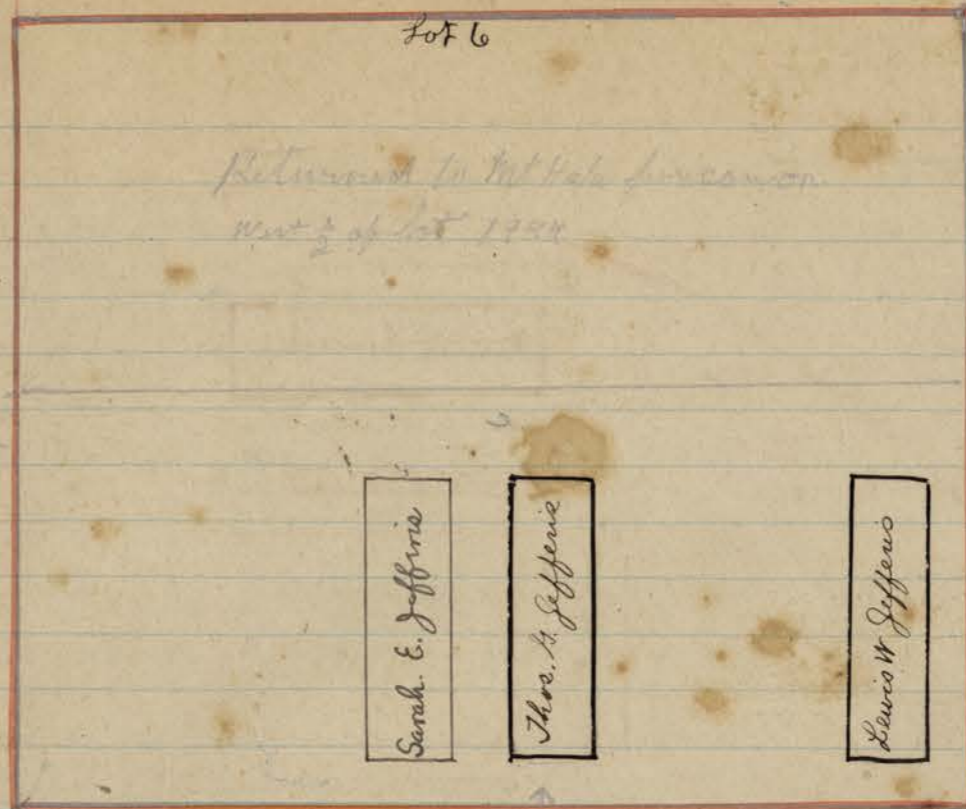 Lot 6
Returned to Mt Hale
West 1/2 of lot
6
Sarah. E. Jeffiris
Thos. G. Jefferis
Lewis W Jefferis